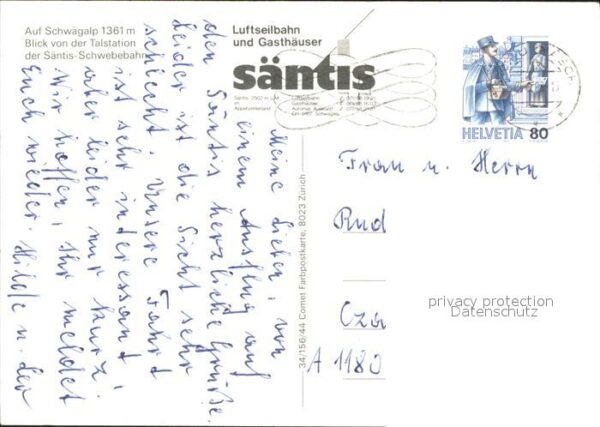 Auf Schwägalp 1361 m
Blick von der Talstation
der Säntis-Schwebebahn
Luftseilbahn
und Gasthäuser
säntis
HELVETIA 80
34/156/44 Comet Farbpostkarte, 8023 Zürich
Meine Lieben, von
einem Ausflug auf
den Säntis herzliche Grüße.
Leider ist die Sicht sehr
schlecht. Unsere Fahrt
ist sehr interessant,
aber leider nur kurz!
Wir hoffen, Ihr meldet
Euch wieder. Hilde u. der
Frau u. Herrn
Rud
Cza
A 1180
privacy protection
Datenschutz